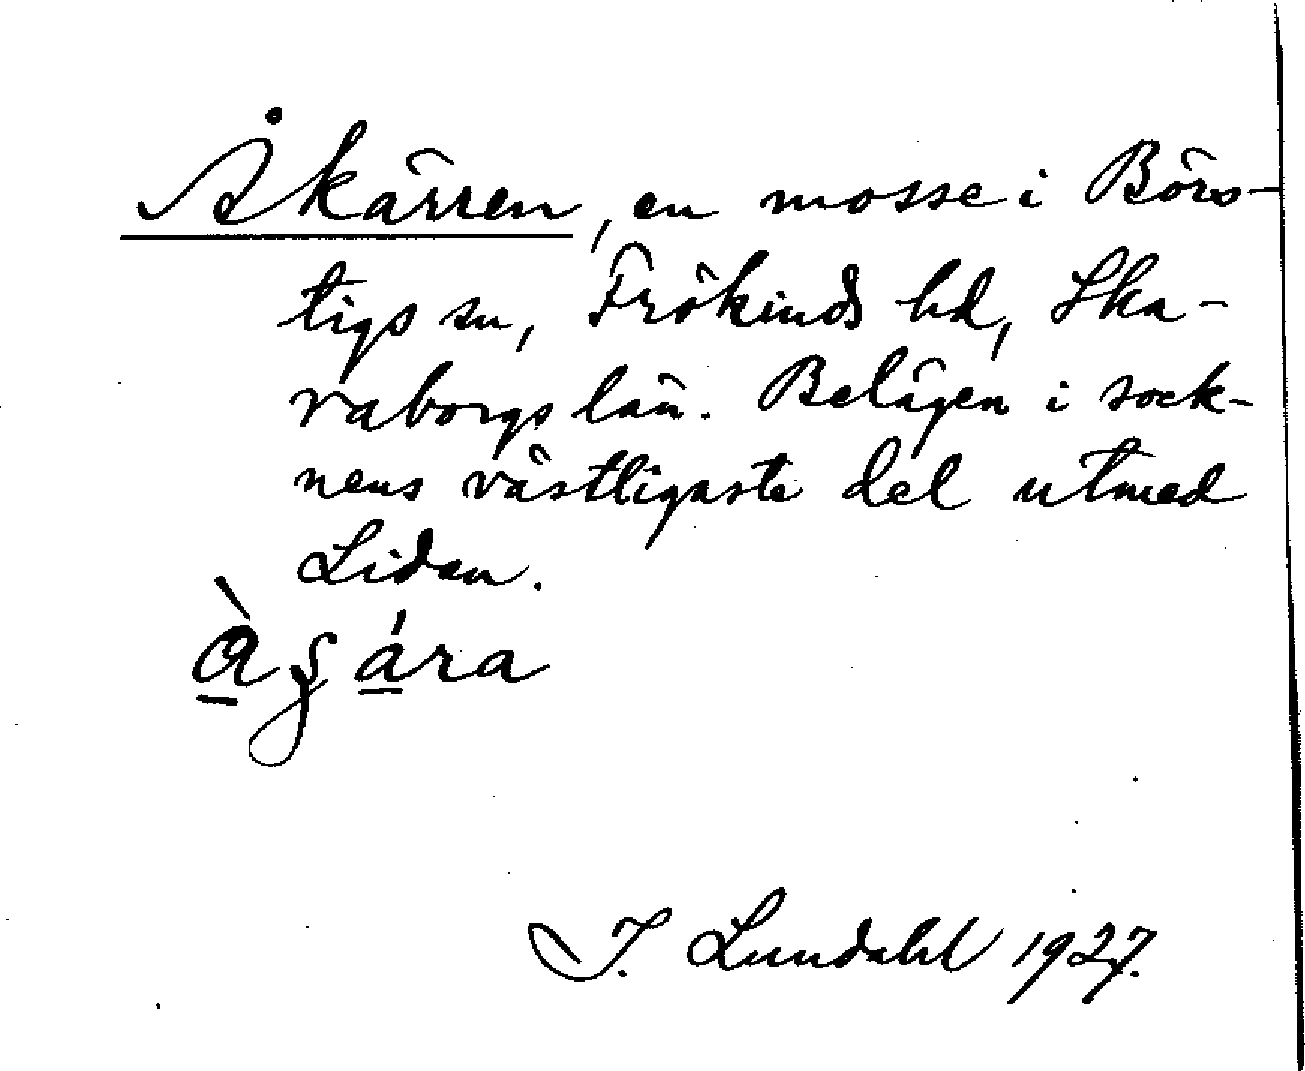 Åkärren, en mosse i Börs-
tigs sn, Frökinds hd, Ska-
raborgs län. Belägen i sock-
nens västligaste del utmed
Lidan.
à̱ʂá̱ra
I. Lundahl 1927.